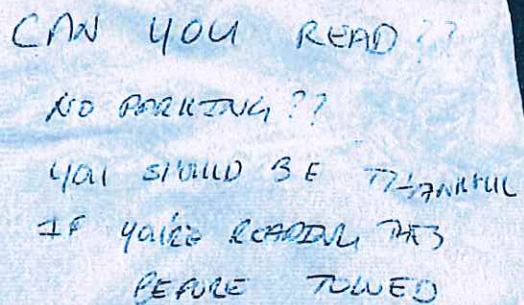 CAN YOU READ??
NO PARKING??
YOU SHOULD BE THANKFUL
IF YOU'RE READING THIS
BEFORE TOWED